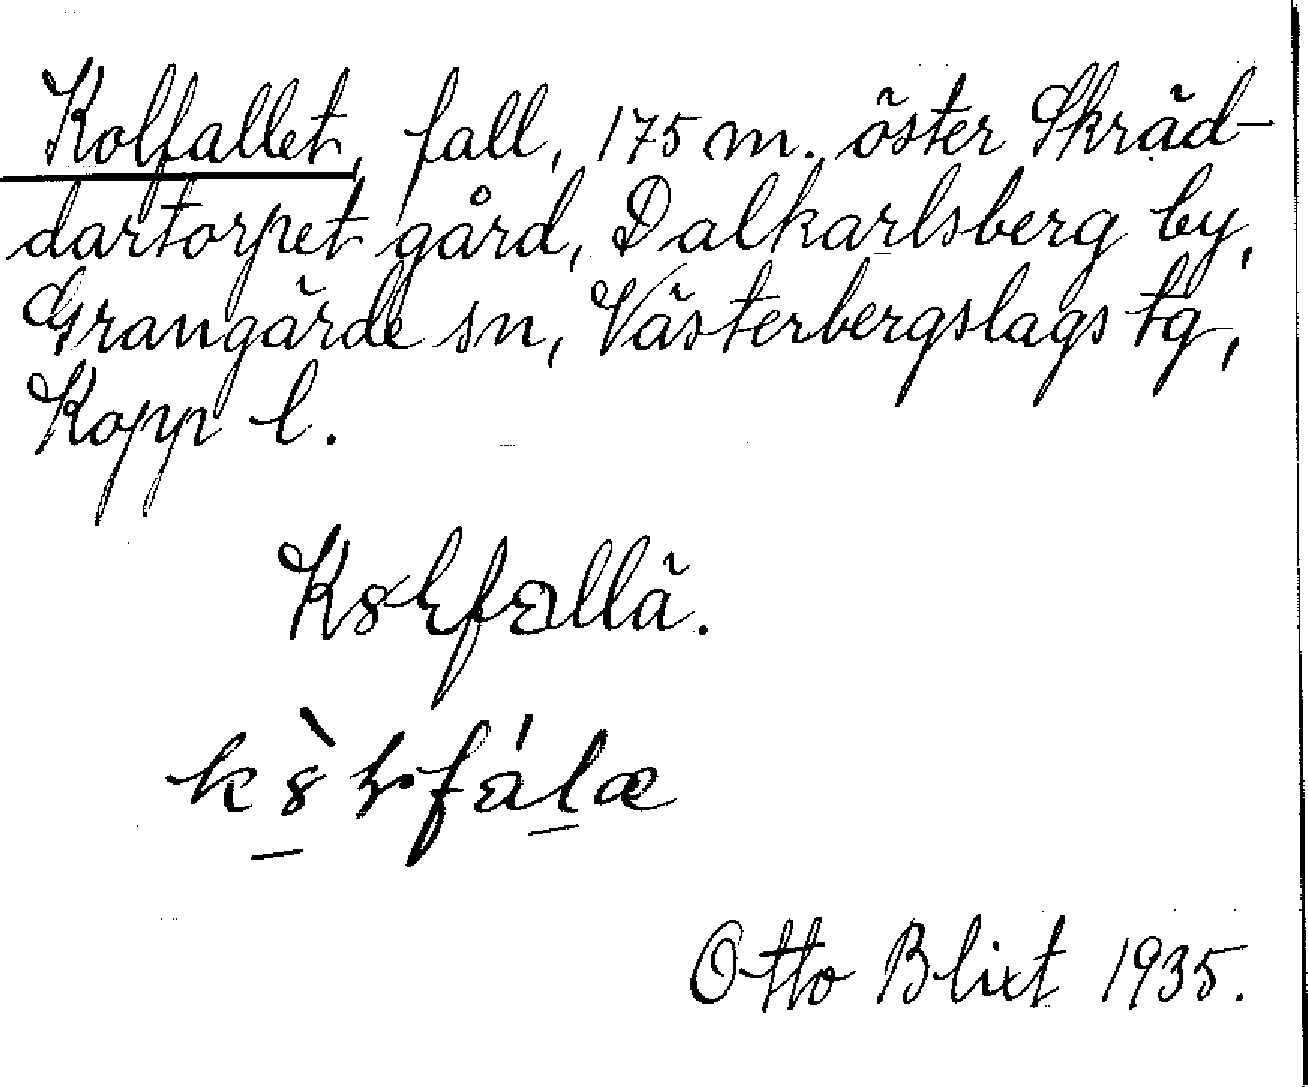 Kolfallet, fall, 175 m. öster Skräd-
dartorpet gård, Dalkarlsberg by,
Grangärde sn, Västerbergslags tg,
Kopp l.
Otto Blixt 1935.